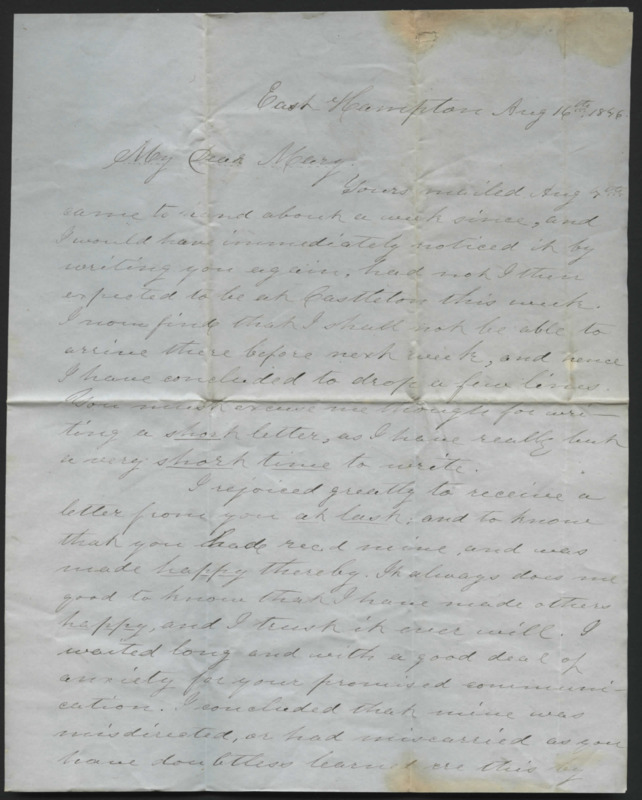 East Hampton Aug 16th 1846
My Dear Mary.
Yours mailed Aug 7th
came to hand about a week since, and
I would have immediately noticed it by
writing you again, had not I then
expected to be at Castleton this week.
I now find that I shall not be able to
arrive there before next week, and hence
I have concluded to drop a few lines.
You must excuse me though for wri-
ting a short letter, as I have really but
a very short time to write.
I rejoiced greatly to receive a
letter from you at last; and to know
that you had recd mine, and was
made happy thereby. It always does me
good to know that I have made others
happy, and I trust it ever will. I
waited long and with a good deal of
anxiety for your promised communi-
cation. I concluded that mine was
misdirected, or had miscarried as you
have doubtless learned ere this by